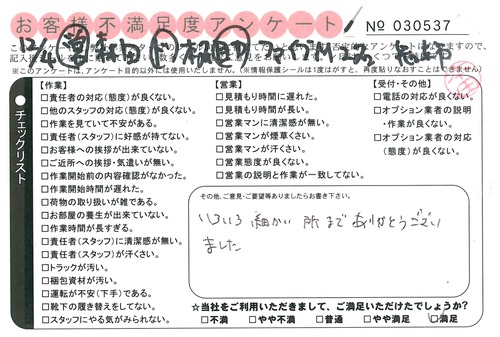 お客様不満足度アンケート
No 030537
※このアンケートは、アンケート目的以外には使用いたしません。(※情報保護シールは1度はがすと、再度貼りなおすことはできません)
チェックリスト
【作業】
□責任者の対応(態度)が良くない。
□他のスタッフの対応(態度)が良くない。
□作業を見ていて不安がある。
□責任者(スタッフ)に好感が持てない。
□お客様への挨拶が出来ていない。
□ご近所への挨拶・気遣いが無い。
□作業開始前の内容確認がなかった。
□作業開始時間が遅れた。
□荷物の取り扱いが雑である。
□お部屋の養生が出来ていない。
□作業時間が長すぎる。
□責任者(スタッフ)に清潔感が無い。
□責任者(スタッフ)が汗くさい。
□トラックが汚い。
□梱包資材が汚い。
□運転が不安(下手)である。
□靴下の履き替えをしてない。
□スタッフにやる気がみられない。
【営業】
□見積もり時間に遅れた。
□見積もり時間が長い。
□営業マンに清潔感が無い。
□営業マンが煙草くさい。
□営業マンが汗くさい。
□営業態度が良くない。
□営業の説明と作業が一致してない。
【受付・その他】
□電話の対応が良くない。
□オプション業者の説明
・作業が良くない。
□オプション業者の対応
(態度)が良くない。
その他、ご意見・ご要望等ありましたらお書き下さい。
いろいろ 細かい 所まで ありがとうござい
ました
☆当社をご利用いただきまして、ご満足いただけたでしょうか?
□不満 □やや不満 □普通 □やや満足 □満足